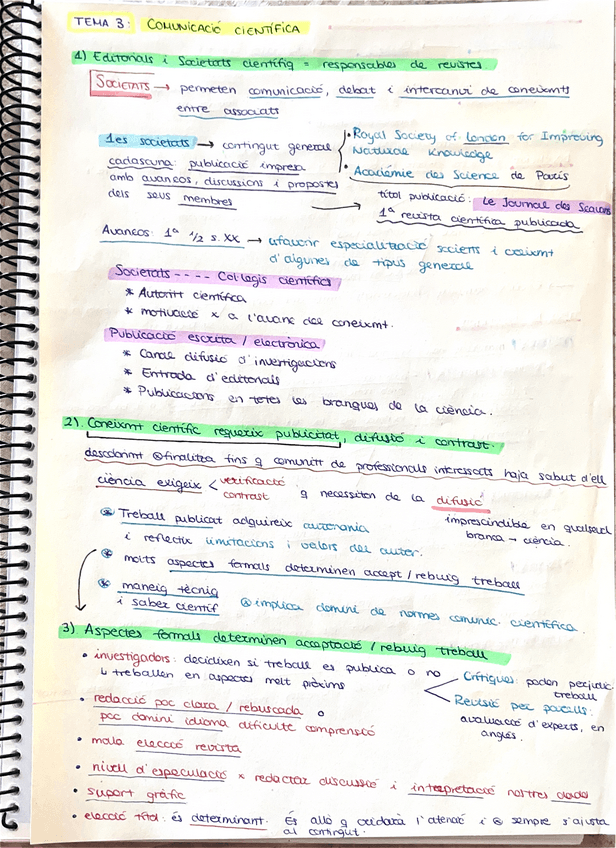 TEMA 3: COMUNICACIÓ CIENTÍFICA
1) Editorials i Societats científiq = responsables de revistes.
SOCIETATS → permeten comunicació, debat i intercanvi de coneixmts
entre associats
1es societats → contingut general
cadascuna: publicació impresa
amb avanços, discussions i propostes
dels seus membres
• Royal Society of London for Improving
Natural Knowledge
• Académie des Science de París
títol publicació: Le Journal des Sçavans
1ª revista científica publicada
Avanços: 1ª 1/2 s. XX → afavorir especialització societs i creixmt
d'algunes de tipus generale
Societats - - - - Col·legis científics
* Autoritt científica
* motivació x a l'avanç del coneixmt.
Publicació escrita / electrònica
* Canal difusió d'investigacions
* Entrada d'editorials
* Publicacions en totes les branques de la ciència.
2). Coneixmt científic requerix publicitat, difusió i contrast.
finalitza fins q comunitt de professionals interessats haja sabut d'ell
ciència exigeix < verificació
contrast
q necessiten de la difusió
imprescindible en qualsevol
branca → ciència.
* Treball publicat adquireix autonomia
i reflectix limitacions i valors del autor.
* molts aspectes formals determinen accept / rebuig treball
* maneig tècniq
i saber científ
implica domini de normes comunic. científica.
3) Aspectes formals determinen acceptació / rebuig treball
• investigadors: decidixen si treball es publica o no
↳ treballen en aspectes molt pròxims
Crítiques: poden perjudic
treball
Revisió per parells:
avaluació d'experts, en
anglés.
• redacció poc clara / rebuscada o
poc domini idioma dificulte comprensió
• mala elecció revista
• nivell d'especulació x redactar discussió i interpretació nostres dades
• suport gràfic
• elecció títol: és determinant. És allò q cridarà l'atenció i sempre s'ajusta
al contingut.